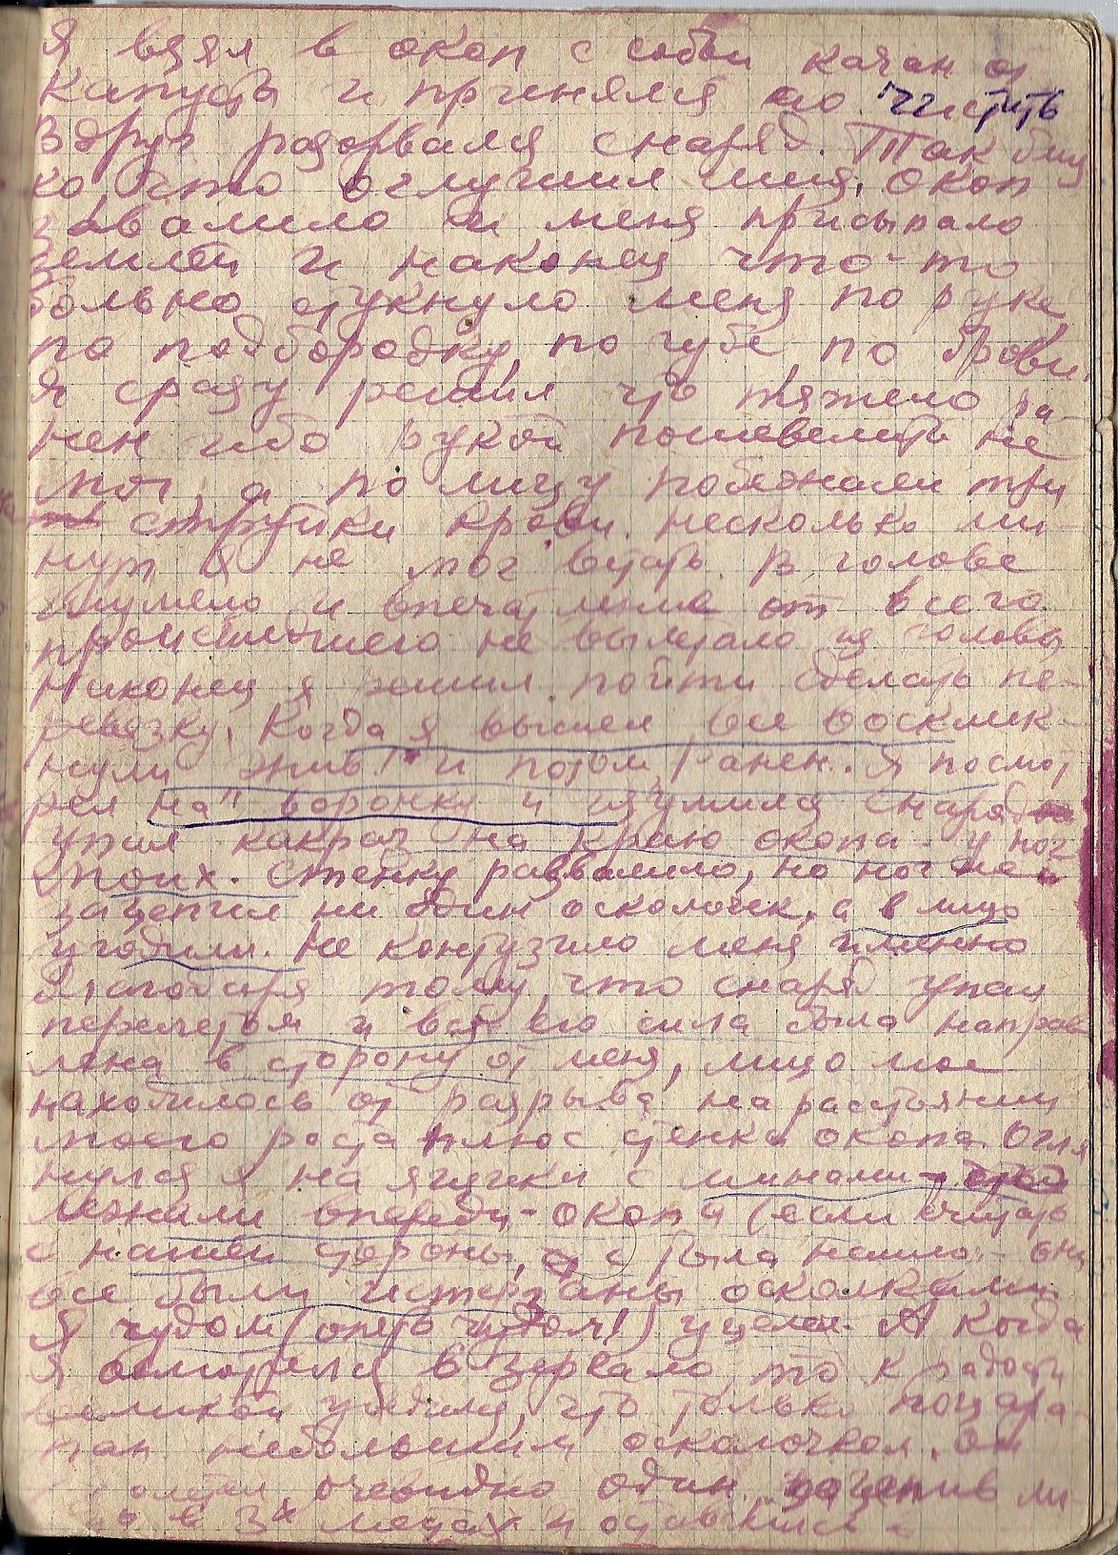 Я взял в окоп с собой качан от
капусты и принялся его чистить
Вдруг разорвался снаряд. Так близ
ко что оглушил меня, окоп
завалило и меня присыпало
землей и наконец что-то
больно стукнуло меня по руке
по подбородку, по губе по брови.
Я сразу решил что тяжело ра-
нен ибо рукой пошевелить не
мог, а по лицу побежали три
струйки крови. Несколько ми-
нут я не мог встать. В голове
шумело и впечатление от всего
происшедшего не вылетало из головы
Наконец я решил пойти сделать пе-
ревязку. Когда я вышел все восклик-
нули "жив!" и потом, ранен. Я посмот
рел на воронку и изумился снаряд
упал как раз на краю окопа у ног
моих. Стенку развалило, но ног не
зацепил ни один осколочек, а в лицо
угодили. Не контузило меня именно
благодаря тому, что снаряд упал
перелетом и вся его сила была направ
лена в сторону от меня, лицо мое
находилось от разрыва на расстоянии
моего роста плюс стенка окопа. Огля
нулся я на ящики с минами -
лежали впереди окопа (если считать
с нашей стороны, а с тыла - они
все были истерзаны осколками.
Я чудом (опять чудом!) уцелел. А когда
я смотрелся в зеркало, то к радости
великой увидил, что только поцара-
пан небольшим осколочком. Он
очевидно один зацепив ли-
цо в 3х местах и